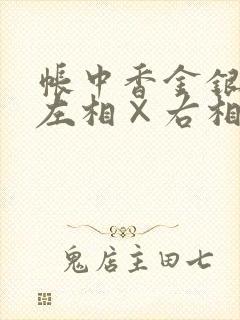 帐中香金银
左相×右相
鬼店主田七